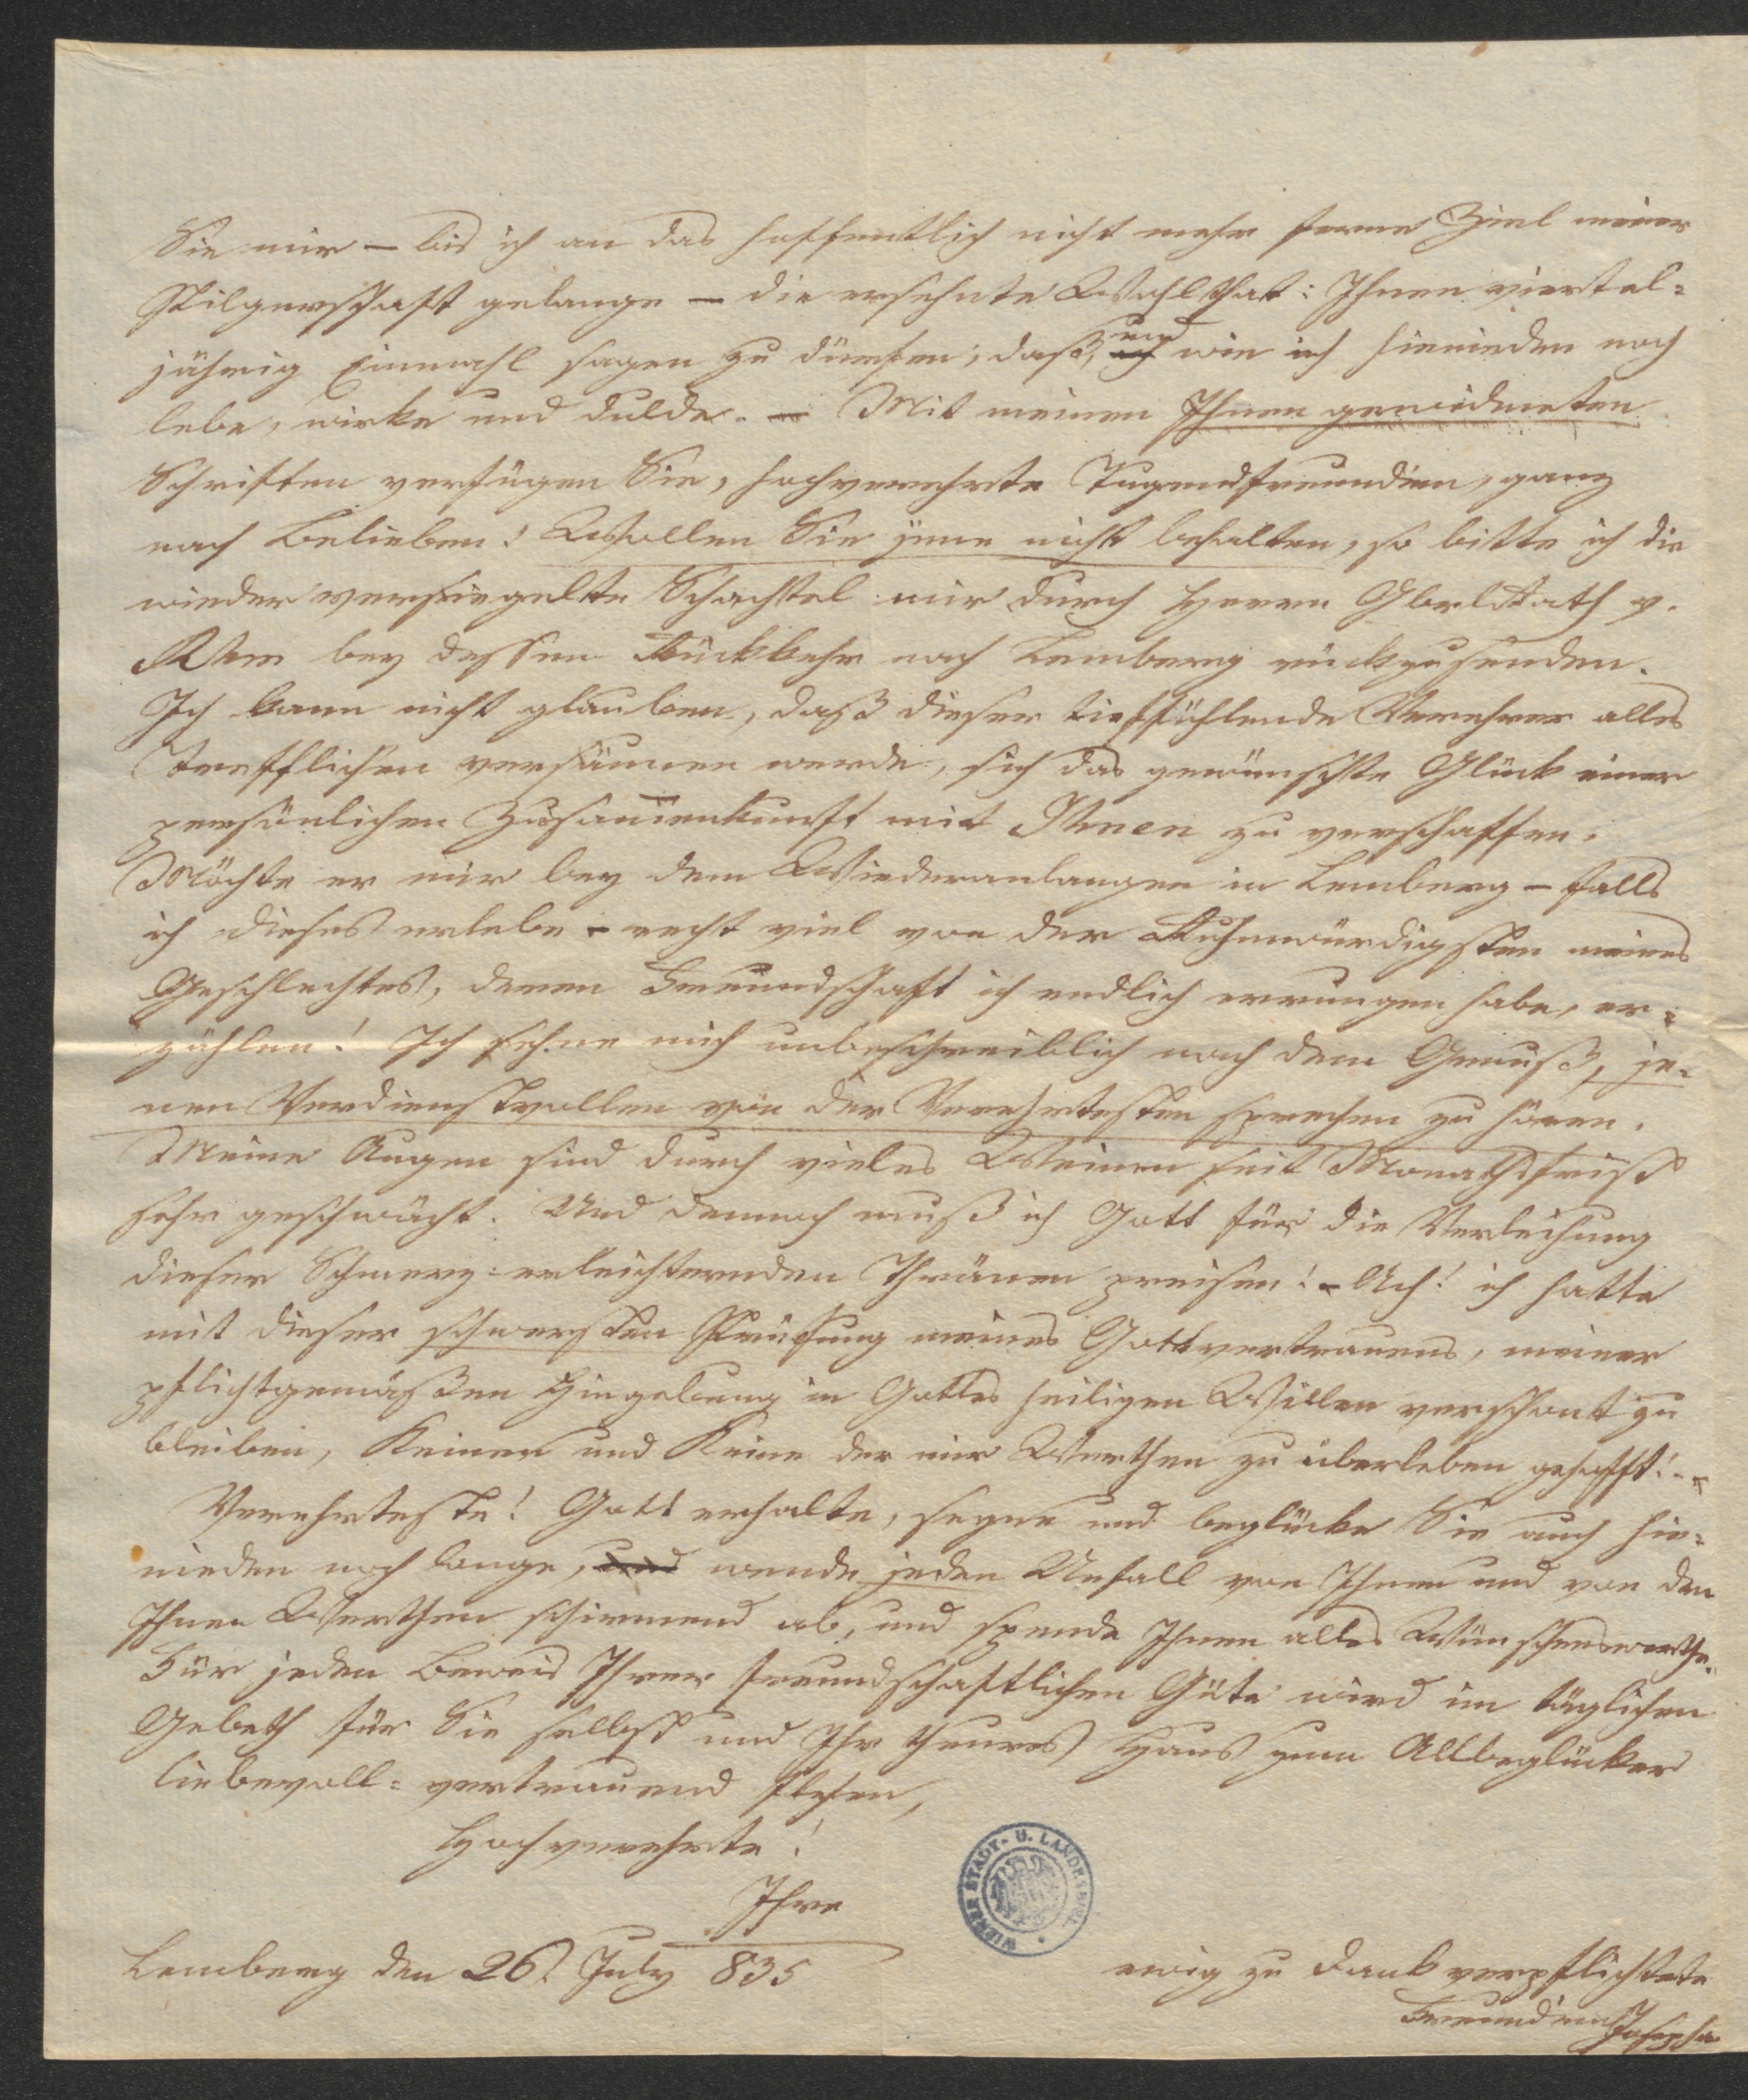 Sie mir – bis ich an das hoffentlich nicht mehr ferne Ziel meiner
Pilgerschaft gelange – die ersehnte Wohlthat: Ihnen viertel=
jährig Einmahl sagen zu dürfen; daß, und wie ich hienieden noch
lebe, wirke und dulde. – Mit meinen Ihnen gewidmeten
Schriften verfügen Sie, hochverehrte Tugendfreundinn, ganz
nach Belieben! Wollen Sie jene nicht behalten, so bitte ich die
wieder versiegelte Schachtel mir durch Herrn Rath v.
bey dessen Rückkehr nach Lemberg rückzusenden.
Ich kann nicht glauben, daß dieser tieffühlende Verehrer alles
Trefflichen versäumen werde, sich das gewünschte Glück einer
persönlichen Zusam̅enkunft mit Ihnen zu verschaffen.
Möchte er mir bey dem Wiederanlangen in Lemberg – falls
ich dieses erlebe – recht viel von der Ruhmwürdigsten meines
Geschlechtes, deren Freundschaft ich endlich errungen habe, er=
zählen! Ich sehne mich unbeschreiblich nach dem Genuß, je=
nen Verdienstvollen von der Verehrtesten sprechen zu hören.
Meine Augen sind durch vieles Weinen seit Monathsfrist
sehr geschwächt. Und dennoch muß ich Gott für die Verleihung
dieser Schmerz=erleichternden Thränen preisen! – Ach! ich hatte
mit dieser schwersten Prüfung meines Gottvertrauens, meiner
pflichtgemäßen Hingebung in Gottes heiligen Willen verschont zu
bleiben, Keinen und Keine der mir Werthen zu überleben gehofft! –
Verehrteste! Gott erhalte, segne und beglücke Sie auch hie=
nieden noch lange, wende jeden Unfall von Ihnen und von den
Ihnen Werthen schirmend ab, und spende Ihnen alles Wünschenswerthe.
Für jeden Beweis Ihrer freundschaftlichen Güte wird im täglichen
Gebeth für Sie selbst und Ihr theures Haus zum Allbeglücker
liebevoll=vertrauend flehen,
Hochverehrte!
Ihre
Lemberg den 26t July 835
ewig zu Dank verpflichtete
Freundinn Josepha
WIENER STADT- U. LANDESBIBL.